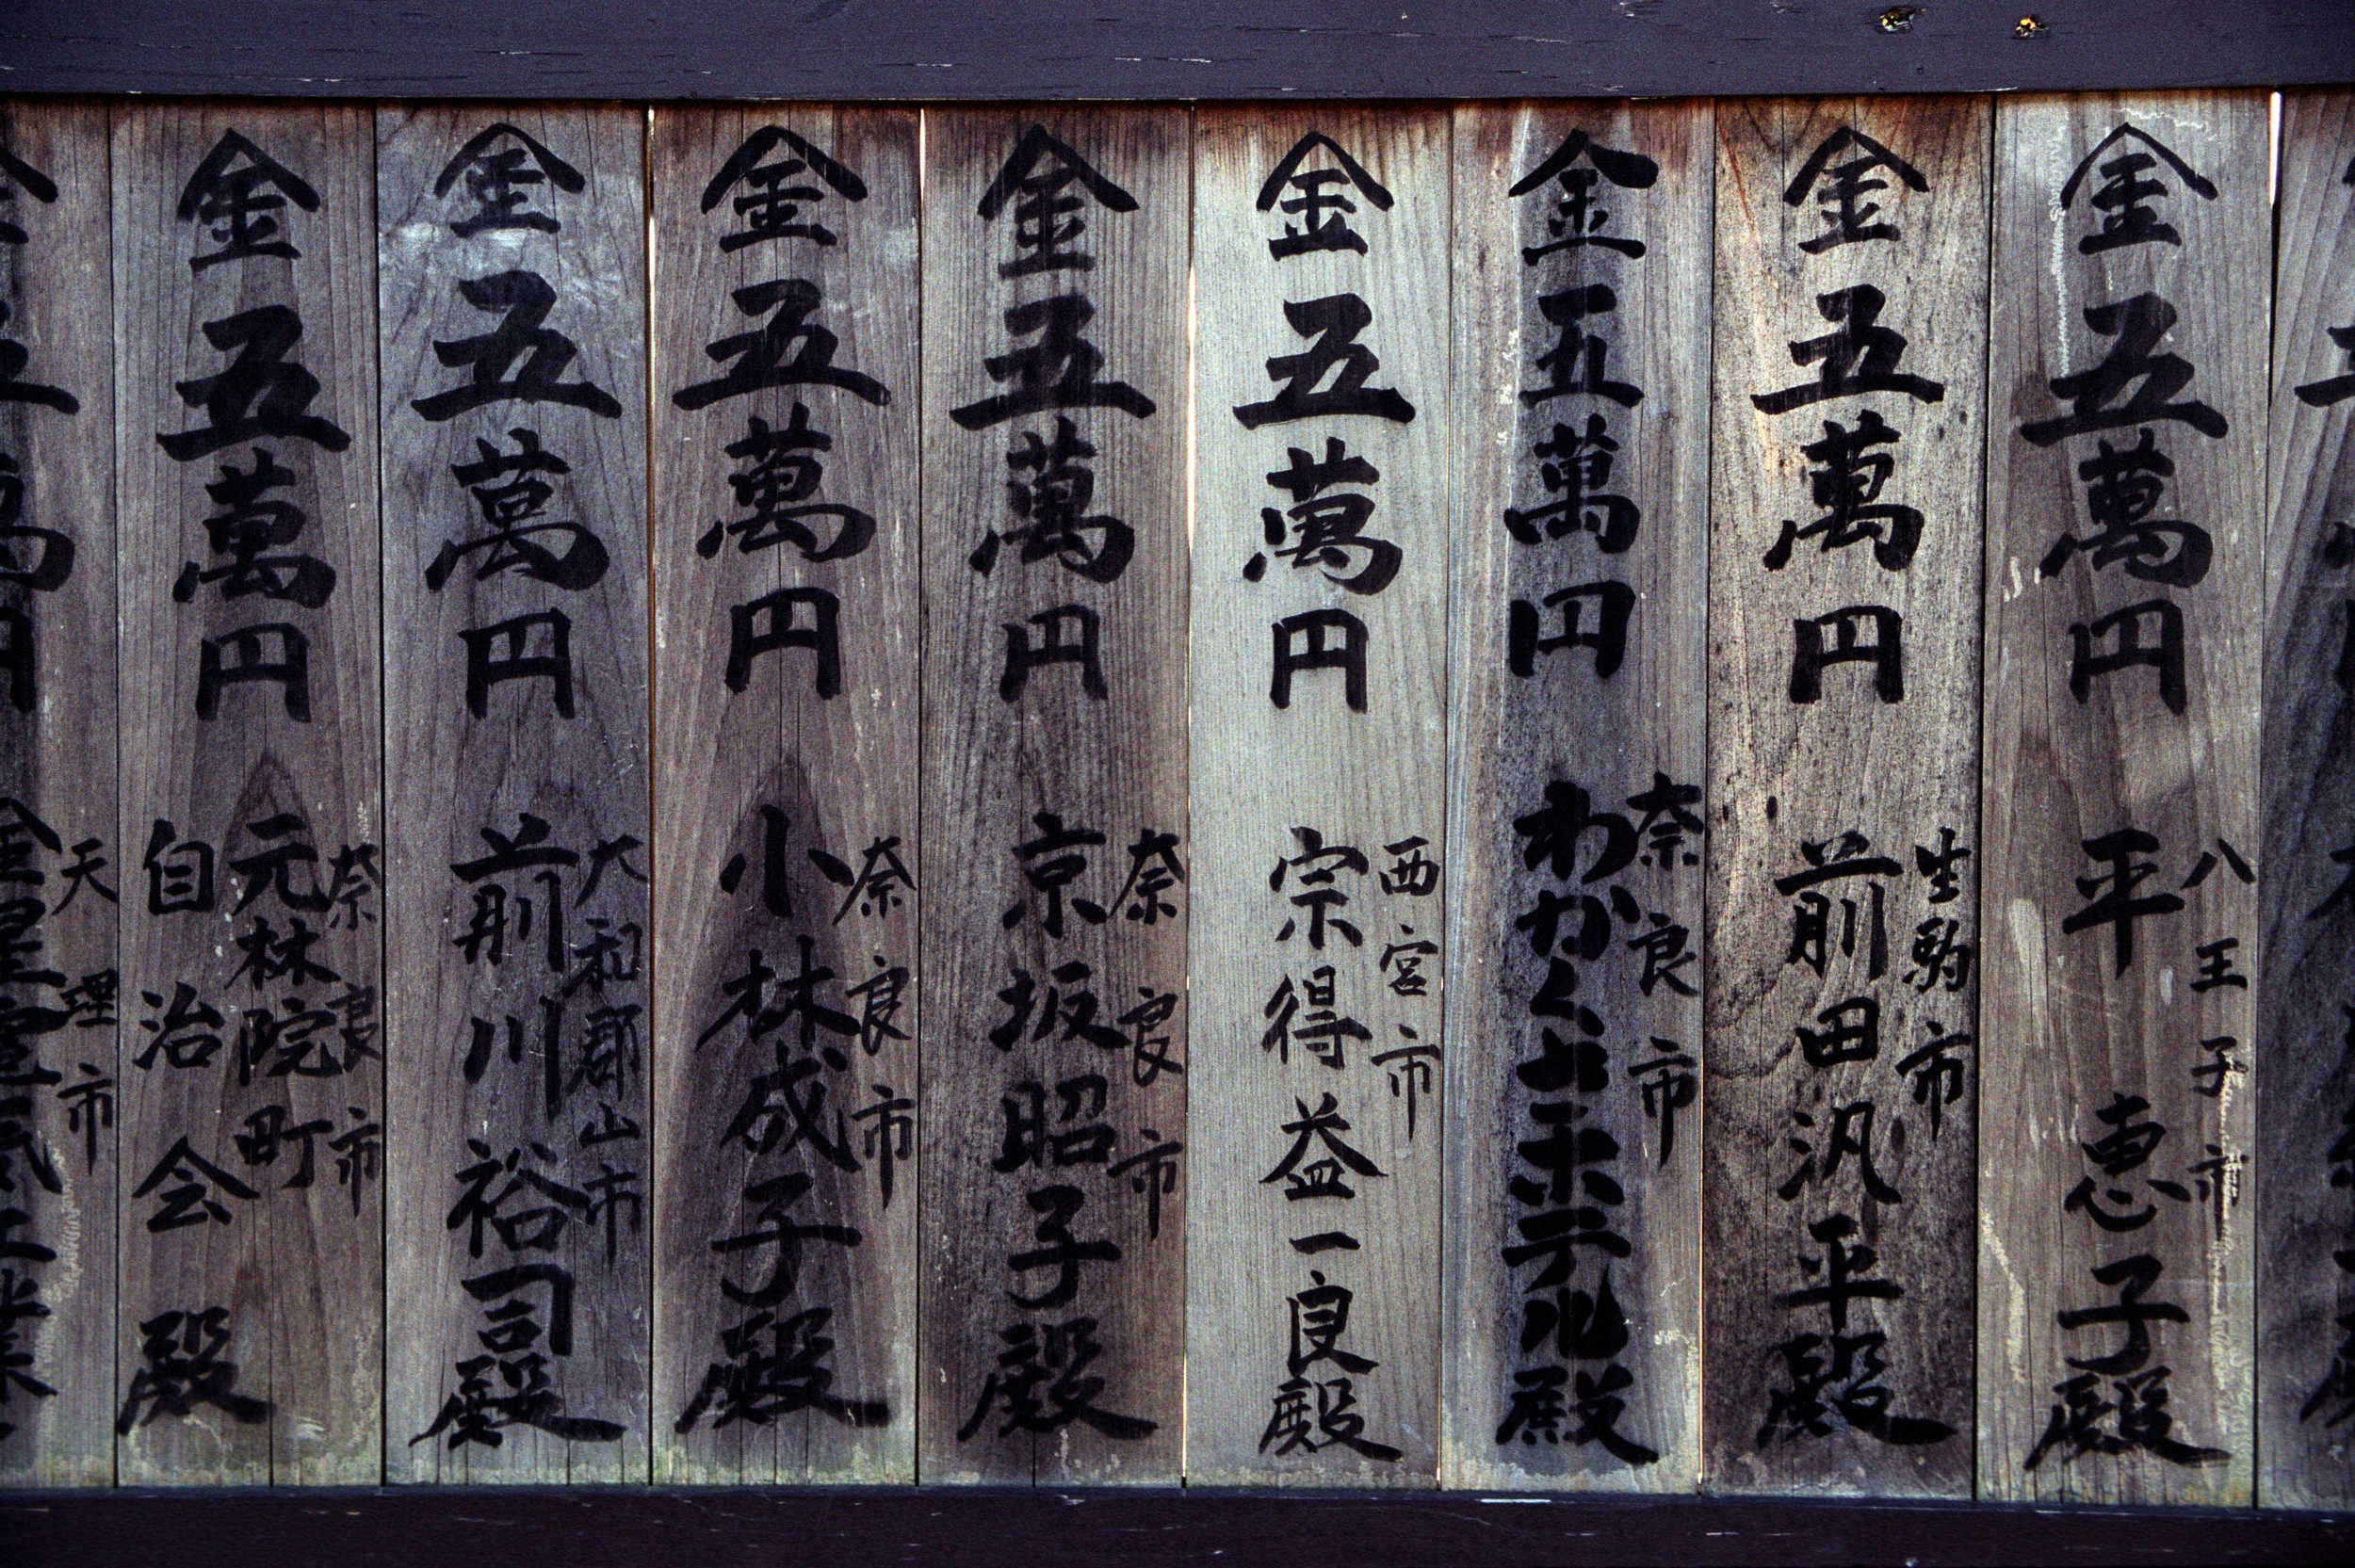 金五萬円
八王子市
平恵子殿
金五萬円
生駒市
前田汎平殿
金五萬円
奈良市
わかくさホテル殿
金五萬円
西宮市
宗得益一良殿
金五萬円
奈良市
京坂昭子殿
金五萬円
奈良市
小林成子殿
金五萬円
大和郡山市
前川裕司殿
金五萬円
奈良市
元林院町
自治会殿
天理市